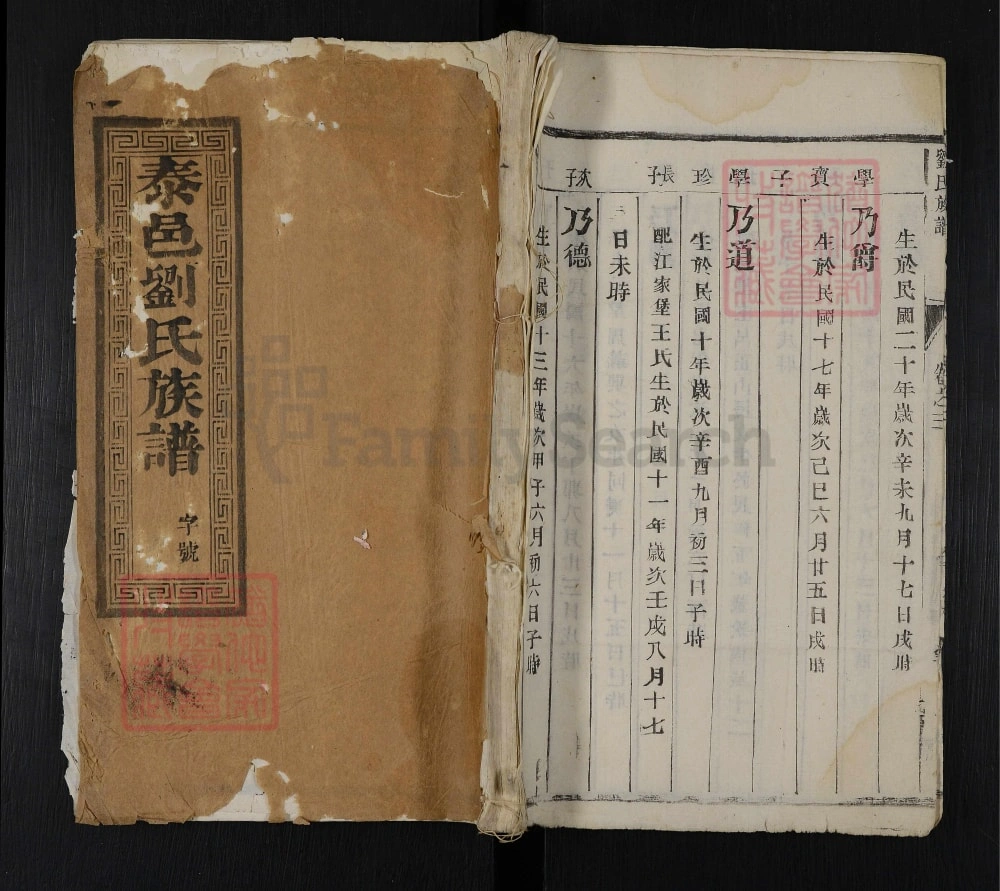 泰邑劉氏族譜
字號
劉氏族譜
卷之三
生於民國二十年歲次辛未九月十七日戌時
學
乃爵
寶
生於民國十七年歲次己巳六月廿五日戌時
子
學
乃道
珍
生於民國十年歲次辛酉九月初三日子時
長子
配江家堡王氏生於民國十一年歲次壬戌八月十七
日未時
次子
乃德
生於民國十三年歲次甲子六月初六日子時
FamilySearch